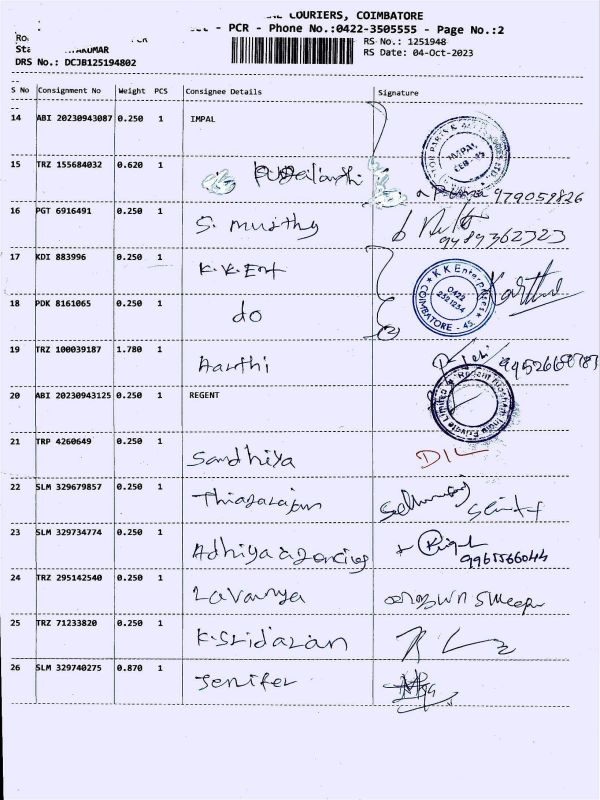 COURIERS, COIMBATORE
- PCR - Phone No.:0422-3505555 - Page No.:2
RS No.: 1251948
RS Date: 04-Oct-2023
DRS No.: DCJB125194802
S No Consignment No Weight PCS Consignee Details Signature
14 ABI 20230943087 0.250 1 IMPAL
15 TRZ 155684032 0.620 1
979059826
16 PGT 6916491 0.250 1 S. Murthy
9489362323
17 KDI 883996 0.250 1 K.K.Ent
KK Enterprises
0422
COIMBATORE - 45
Karthi
18 PDK 8161065 0.250 1 do
19 TRZ 100039187 1.780 1 Aarthi
20 ABI 20230943125 0.250 1 REGENT
21 TRP 4260649 0.250 1 Sandhiya
22 SLM 329679857 0.250 1 Thiagarajan
23 SLM 329734774 0.250 1 Adhiya agencies
9965566044
24 TRZ 295142540 0.250 1 Lavanya
25 TRZ 71233820 0.250 1 K.Sridaran
26 SLM 329740275 0.870 1 Jenifer